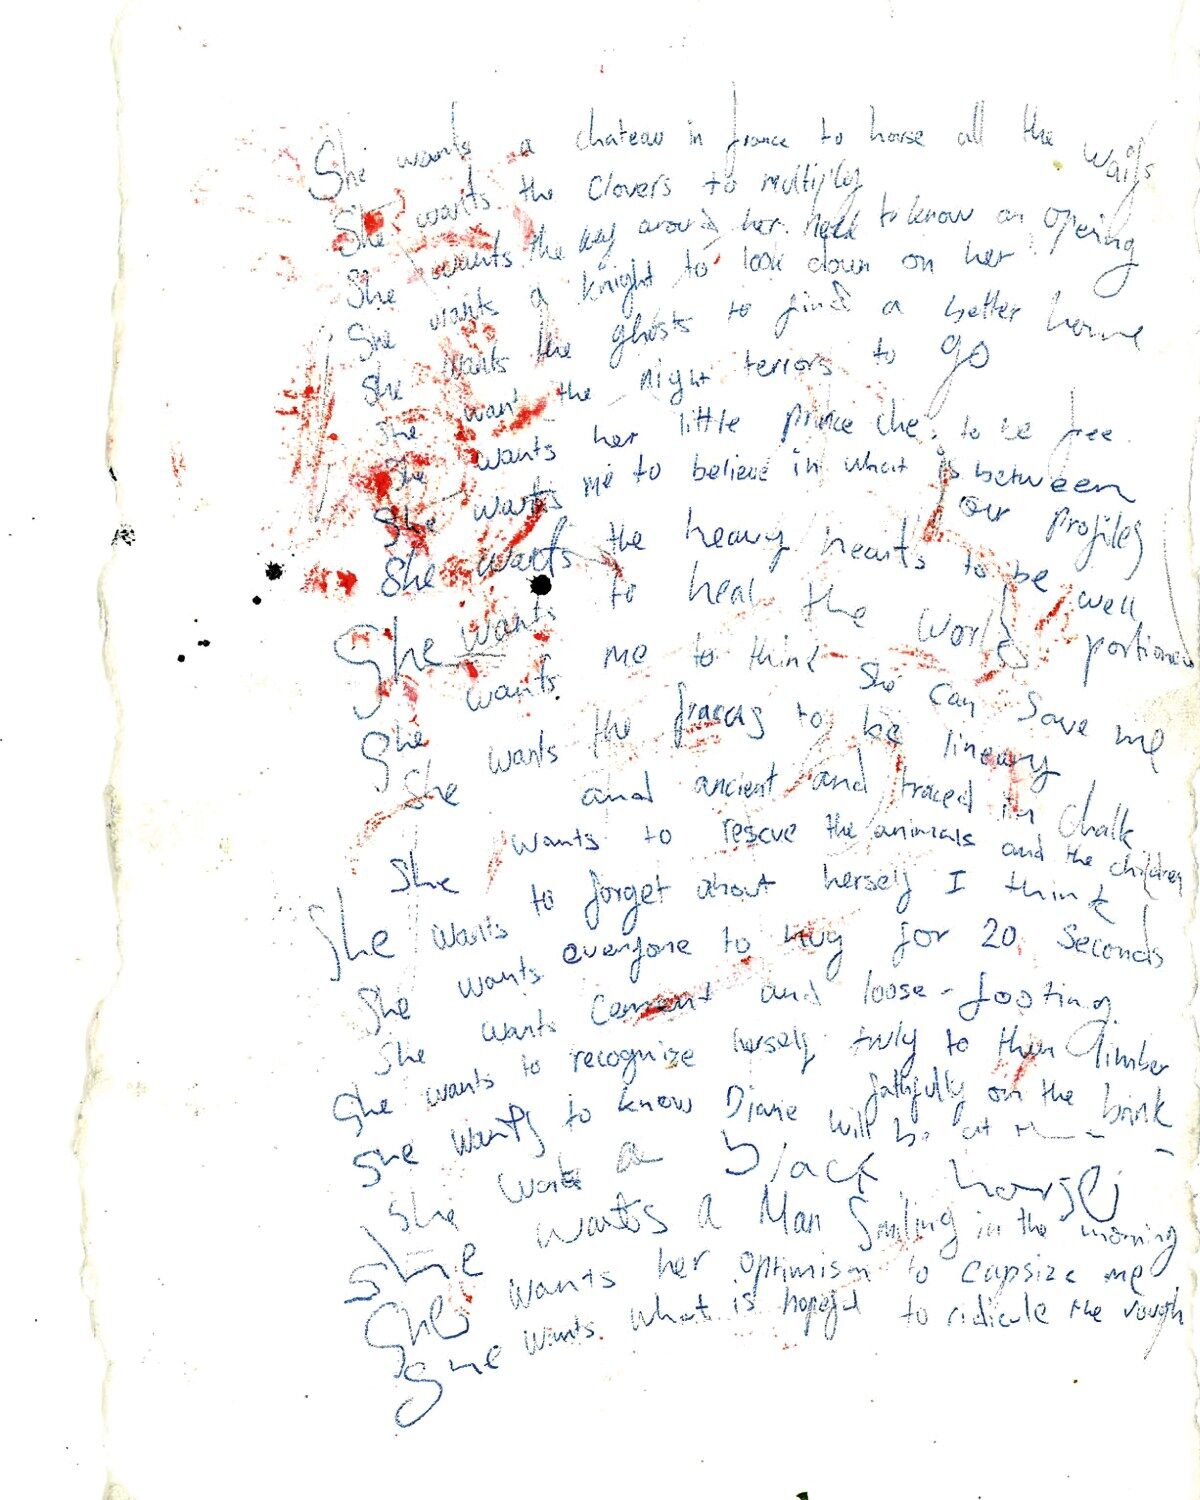 She wants a chateau in france to house all the waifs
She wants the clovers to multiply
She wants the key around her neck to know an opening
She wants a knight to look down on her
She wants the ghosts to find a better home
She want the night terrors to go
She wants her little prince che. to be free
She wants me to believe in what is between
our profiles
She wants the heavy hearts to be well
portioned
She wants to heal the world
She wants me to think she can save me
She wants the to be lineary
and ancient and traced in chalk
She wants to rescue the animals and the children
She wants to forget about herself I think
She wants everyone to hug for 20 seconds
She wants cement and loose-footing
She wants to recognize herself truly to then limber
faithfully on the brink
She wants to know Diane will be at
She wants a black horse
She wants a Man Smiling in the morning
She wants her optimism to capsize me
She wants what is hopeful to ridicule the rough